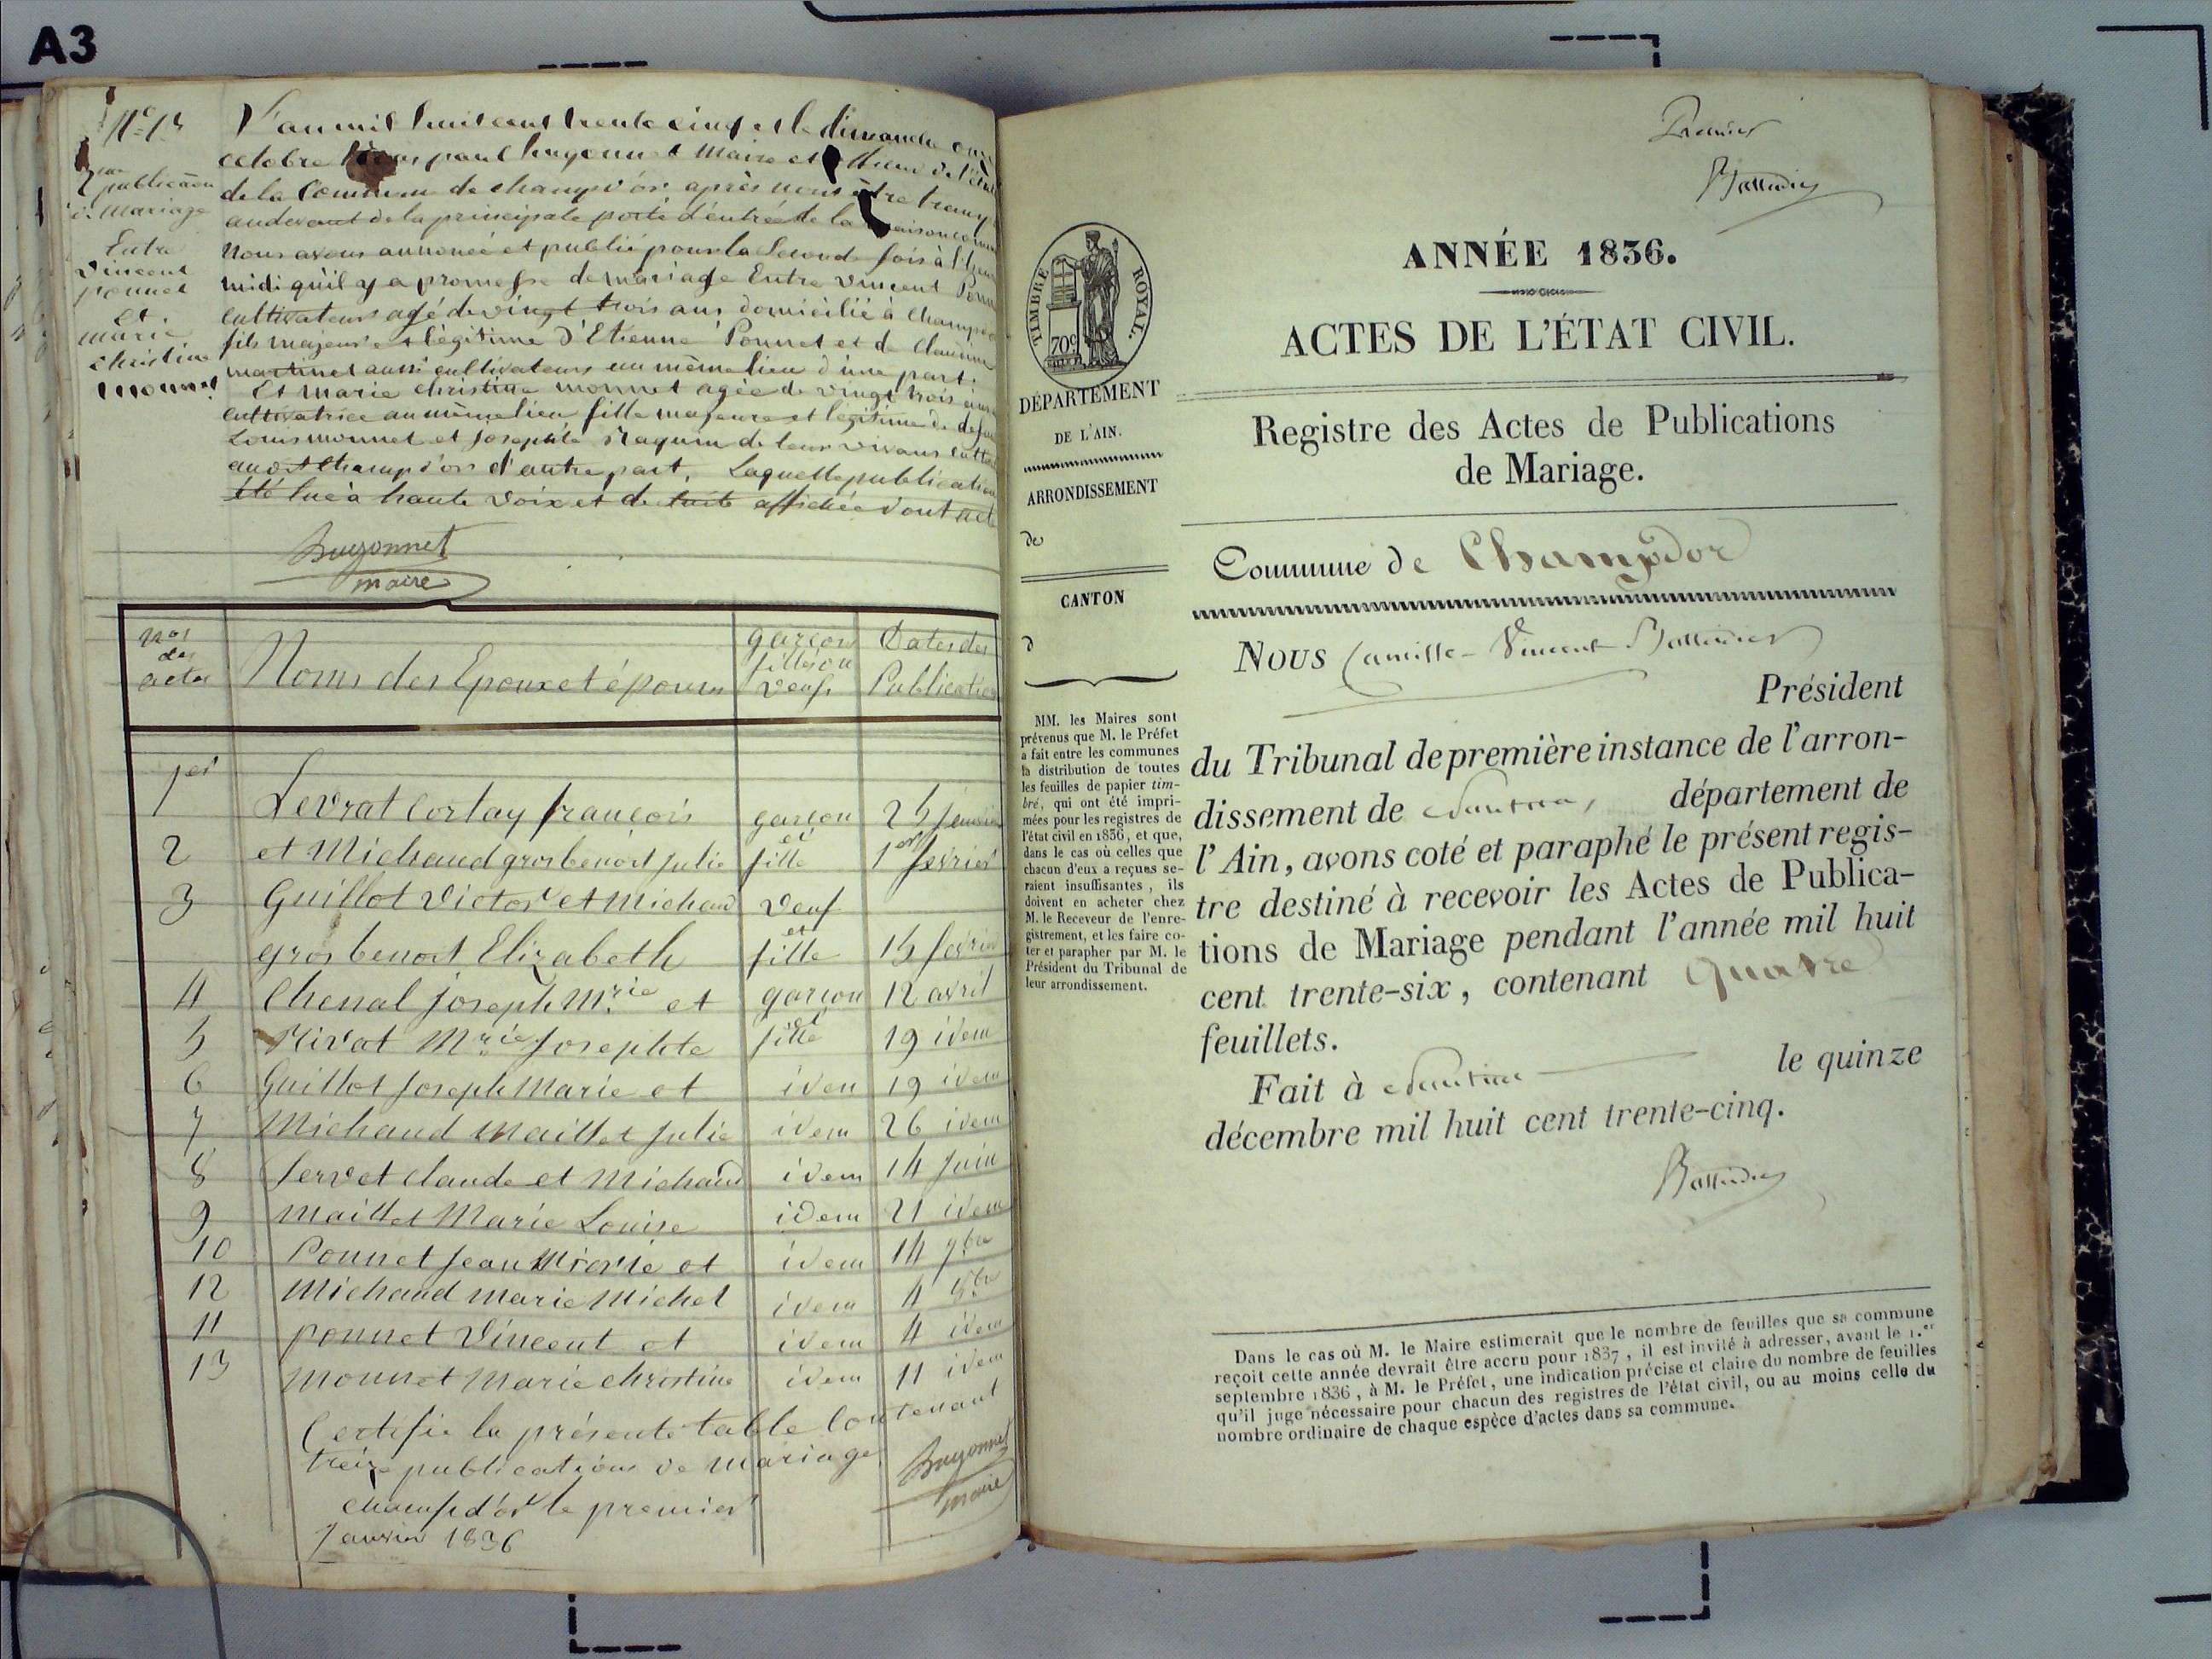 A3
2me
publication
de Mariage
Entre
Vincent
ponnet
et
marie
christine
monnet
L'an mil huit cent trente cinq et le dimanche onze
octobre Nous paul hugonnet Maire et officier de l'état
de la Commune de champd'or après nous être transp
audevant de la principale porte d'entrée de la maison comm
Nous avons annoncé et publié pour la Seconde fois à l'heure
midi qu'il y a promesse de mariage Entre Vincent Ponn
cultivateur agé de vingt trois ans domicilié à champd'o
fils majeur et légitime d'Etienne Ponnet et de Claudine
martinet aussi cultivateurs au même lieu d'une part.
Et Marie christine monnet agée de vingt trois ans
cultivatrice au même lieu fille majeure et légitime de defun
Louis monnet et josephte de leur vivans culti
audt Champd'or d'autre part. Laquelle publication
été lue à haute voix et de suite affichée dont acte
maire
nos
des
actes
Noms des Epoux et épouses
garçons
filles ou
veufs
Dates des
Publication
1er Levrat Cortay françois garçon 25 janvier
2 et Michaud gros benoit julie et fille 1er février
3 Guillot Victor et Michaud veuf
gros benoit Elizabeth et fille 15 février
4 Chenal joseph Mrie et garçon 12 avril
5 Rivat Mrie Josephte et fille 19 idem
6 Guillot Joseph Marie et idem 19 idem
7 Michaud Maillet Julie idem 26 idem
8 Servet claude et Michaud idem 14 Juin
9 maillet Marie Louise idem 21 idem
10 Ponnet Jean Marie et idem 14 7bre
12 Michaud marie Michel idem 4 8bre
11 ponnet Vincent et idem 4 idem
13 Monnet Marie christine idem 11 idem
Certifié la présente table contenant
treize publications de mariage
champd'or le premier
Janvier 1836
maire
Premier
TIMBRE ROYAL.
70c
DÉPARTEMENT
DE L'AIN.
ARRONDISSEMENT
de
CANTON
d
MM. les Maires sont
prévenus que M. le Préfet
a fait entre les communes
la distribution de toutes
les feuilles de papier tim-
bré, qui ont été impri-
mées pour les registres de
l'état civil en 1836, et que,
dans le cas où celles que
chacun d'eux a reçues se-
raient insuffisantes, ils
doivent en acheter chez
M. le Receveur de l'enre-
gistrement, et les faire co-
ter et parapher par M. le
Président du Tribunal de
leur arrondissement.
ANNÉE 1836.
ACTES DE L'ÉTAT CIVIL.
Registre des Actes de Publications
de Mariage.
Commune de Champdor
NOUS Camille-Vincent
Président
du Tribunal de première instance de l'arron-
dissement de Nantua, département de
l'Ain, avons coté et paraphé le présent regis-
tre destiné à recevoir les Actes de Publica-
tions de Mariage pendant l'année mil huit
cent trente-six, contenant quatre
feuillets.
Fait à Nantua le quinze
décembre mil huit cent trente-cinq.
Dans le cas où M. le Maire estimerait que le nombre de feuilles que sa commune
reçoit cette année devrait être accru pour 1837, il est invité à adresser, avant le 1.er
septembre 1836, à M. le Préfet, une indication précise et claire du nombre de feuilles
qu'il juge nécessaire pour chacun des registres de l'état civil, ou au moins celle du
nombre ordinaire de chaque espèce d'actes dans sa commune.